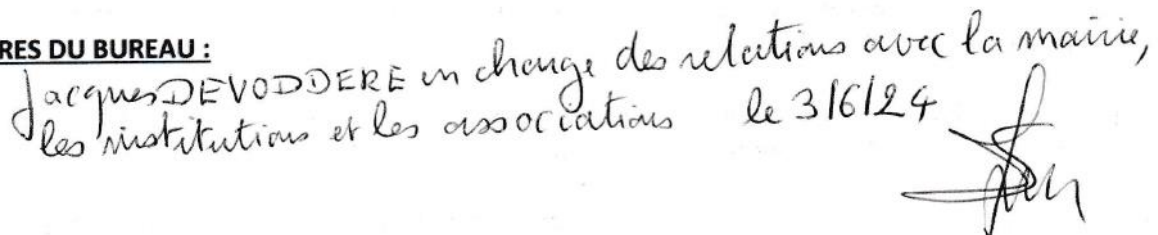 RES DU BUREAU :
Jacques DEVODDERE en charge des relations avec la mairie,
les institutions et les associations le 3/6/24